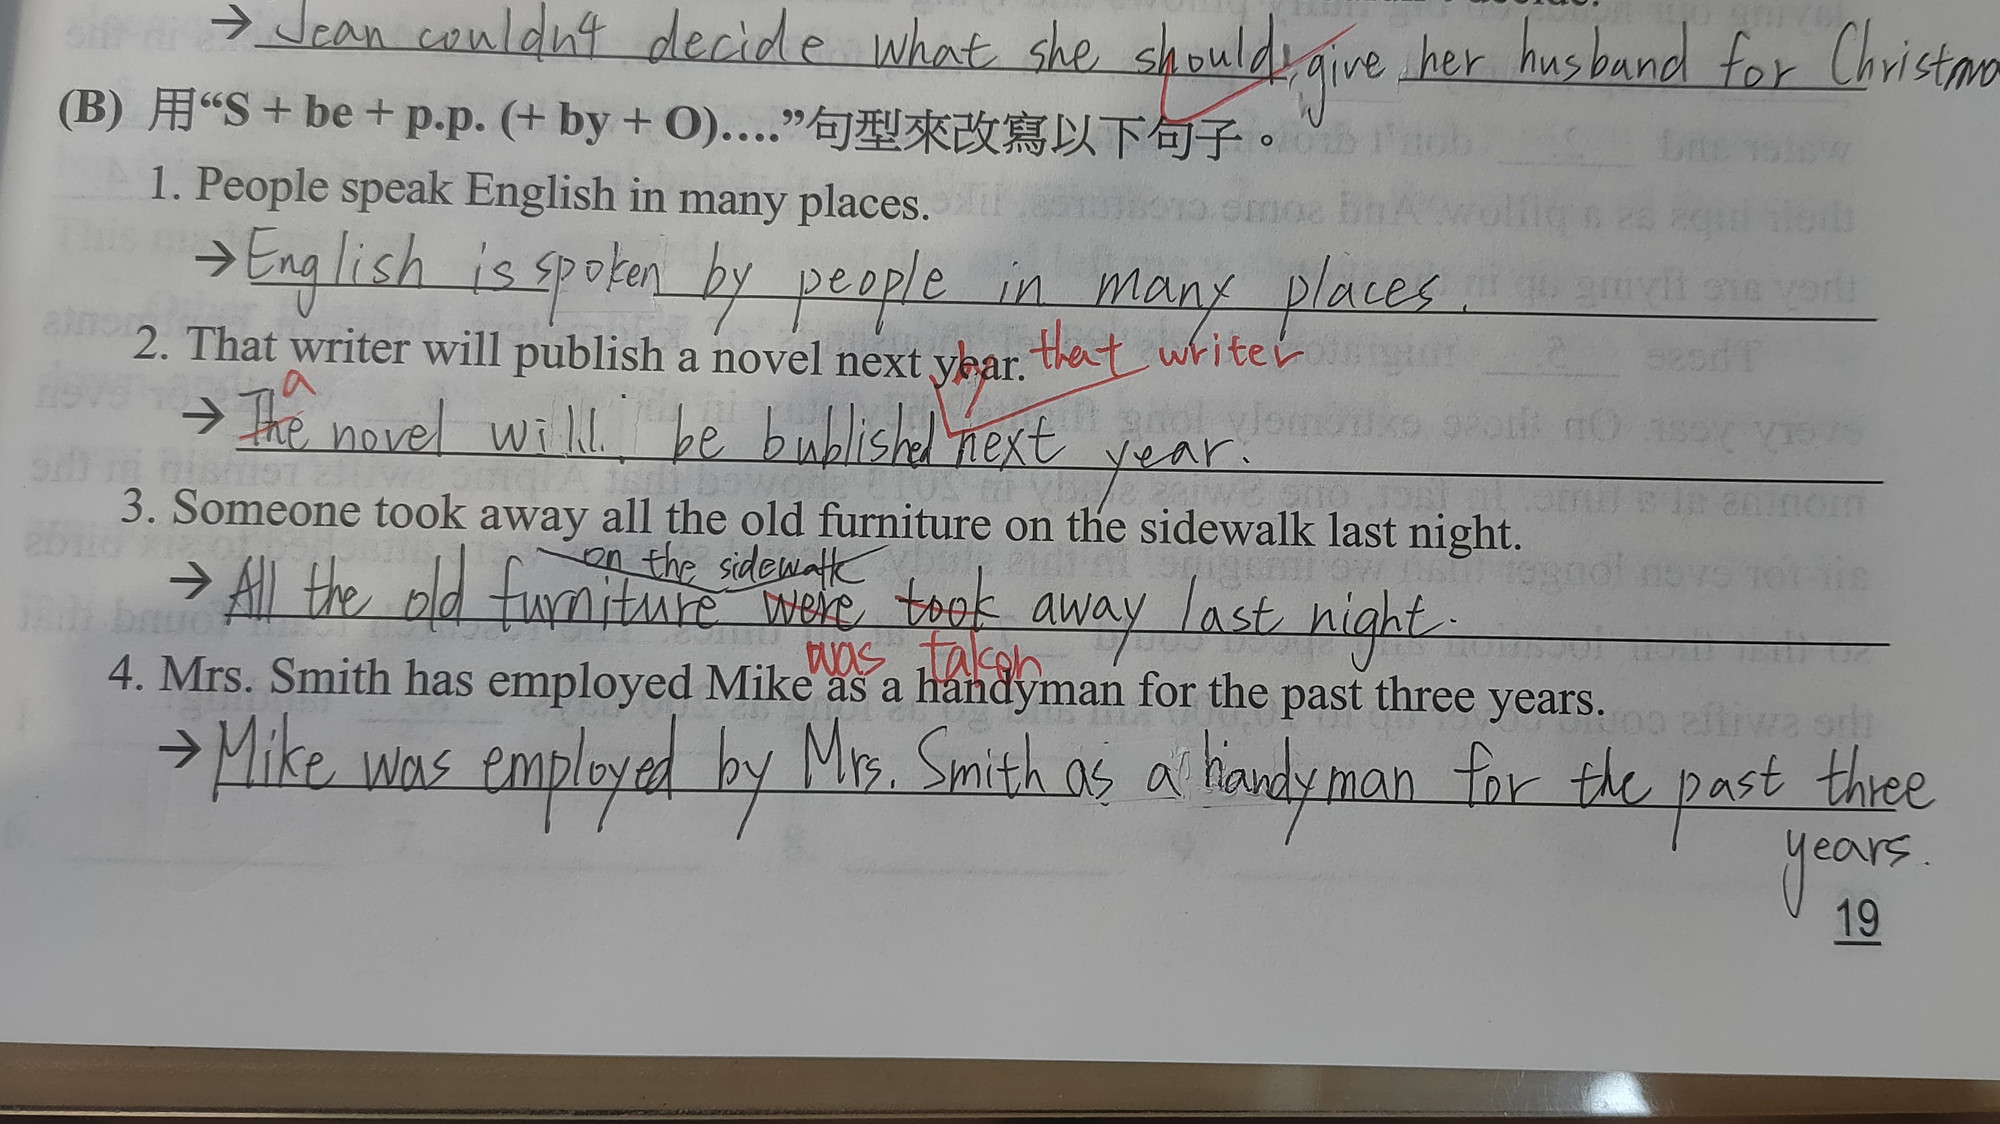 → Jean couldn't decide what she should give her husband for Christma
(B) 用“S + be + p.p. (+ by + O)....”句型來改寫以下句子。
1. People speak English in many places.
→ English is spoken by people in many places.
2. That writer will publish a novel next year. by that writer
a
→ The novel will be bublished next year.
3. Someone took away all the old furniture on the sidewalk last night.
on the sidewalk
→ All the old furniture were took away last night.
was taken
4. Mrs. Smith has employed Mike as a handyman for the past three years.
→ Mike was employed by Mrs. Smith as a handyman for the past three
years.
19